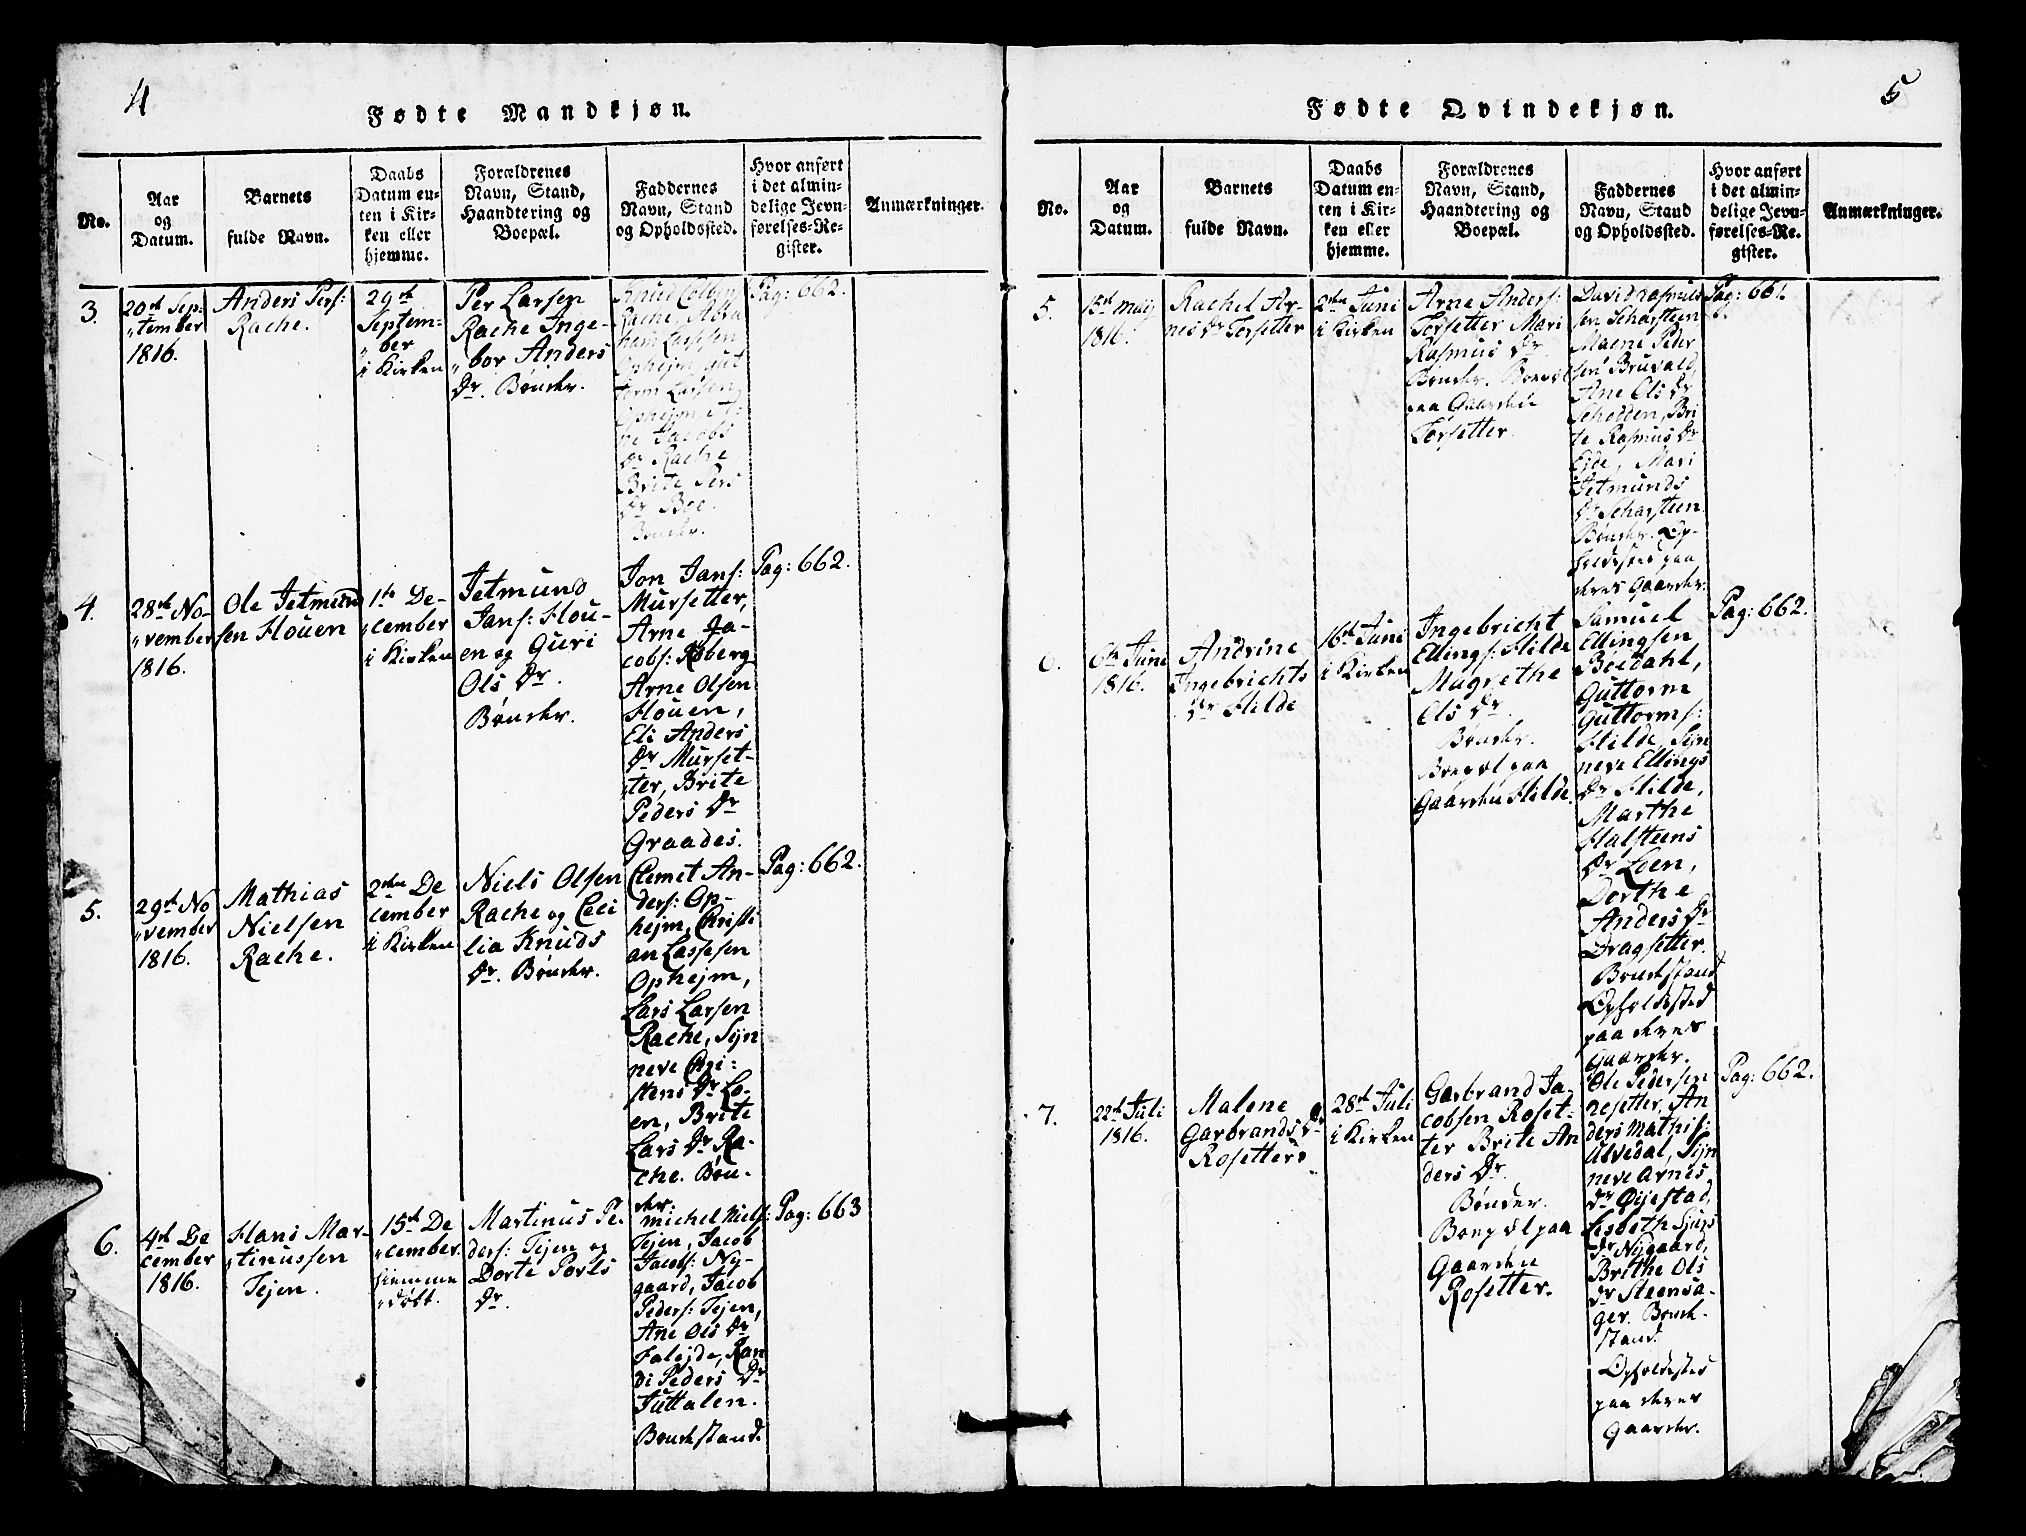 4
Fødte Mandkjøn.
No.
Aar
og
Datum.
Barnets
fulde Navn.
Daabs
Datum en-
ten i Kir-
ken eller
hjemme.
Forældrenes
Navn, Stand,
Haandtering og
Boepæl.
Faddernes
Navn, Stand
og Opholdssted.
Hvor anført
i det almin-
delige Jevn-
førelses-Re-
gister.
Anmærkninger.
3.
20de Sep-
„tember
1816.
Anders Pers:
Rache.
29de
Septem-
„ber
i Kirken
Per Larsen
Rache Inge-
„bor Anders
Dr. Bønder.
Knud Colbens
Rache, Abra
ham Lassesen
Ophejm, Gut
torm Larsen
Ophejm
Jacobs
Dr Rache
Brite Pers
Dr Boe.
Bønder.
Pag: 662.
4.
28de No-
„vember
1816.
Ole Jetmund
sen Houen
1ste De-
„cember
i Kirken
Jetmund
Jans: Hou-
en og Guri
Ols Dr.
Bønder.
Jon Jans:
Mursetter,
Arne Ja-
cobs: Roberg
Arne Olsen
Houen,
Eli Anders
Dr Murset-
„ter, Brite
Peders Dr
Graades.
Pag: 662.
5.
29de No
„vember
1816.
Mathias
Nielsen
Rache.
2den De
cember
i Kirken
Niels Olsen
Rache og Ceci
lia Knuds
Dr. Bønder.
Clemet An-
ders: Op-
hejm, Christi
an Lassesen
Ophejm,
Lars Larsen
Rache, Sÿn
neve Chri:
stens Dr Lo-
en, Brite
Lars Dr Ra-
che. Bøn-
der.
Pag: 662.
6.
4de De
cember
1816.
Hans Mar-
„tinussen
Tejen.
15de De
„cember
hjemme
„døbt.
Martinus Pe-
ders: Tejen og
Dorte Povls
Dr.
Michel Niels:
Tejen, Jacob
Jacobs: Ny-
gaard, Jacob
Peders: Tejen,
Ane Ols Dr
Falejde, Ran
di Peders Dr
Tuttalen.
Bondestand.
Pag: 663
5
Fødte Qvindekjøn.
No.
Aar
og
Datum.
Barnets
fulde Navn.
Daabs
Datum en-
ten i Kir-
ken eller
hjemme.
Forældrenes
Navn, Stand,
Haandtering og
Boepæl.
Faddernes
Navn, Stand
og Opholdssted.
Hvor anført
i det almin-
delige Jevn-
førelses-Re-
gister.
Anmærkninger.
5.
15de Maij
1816.
Rachel Ar-
nes Dr Torsetter
2den Juni
i Kirken
Arne Anders:
Torsetter Mari
Rasmus Dr
Bønder. Boepæl
paa Gaarden
Torsetter.
David Rasmus
sen Scharsteen
Magne Peder
sen Bruvald,
Ane Ols Dr
Scholden, Bri
te Rasmus Dr
Ejde, Mari
Jetmunds
Dr Scharsteen
Bønder. Op-
holdssted paa
deres Gaarder.
Pag: 661.
6.
6te Juni
1816.
Andrine
Ingebrichts
Dr Hilde
16de Juni
i Kirken
Ingebricht
Ellings: Hilde
Magrethe
Ols Dr.
Bønder.
Boepæl paa
Gaarden Hilde.
Samuel
Ellingsen
Bøedahl,
Guttorm
Guttorms:
Hilde, Sÿn
neve Ellings
Dr Hilde,
Marthe
Halsteens
Dr Leen,
Dorthe
Anders Dr
Dragsetter.
Bondestand
Opholdssted
paa deres
Gaarder.
Pag: 662.
7.
22de Juli
1816.
Malene
Garbrands Dr
Rosetter.
28de Juli
i Kirken
Garbrand Ja-
cobsen Roset-
ter Brite An
ders Dr.
Bønder.
Boepæl paa
Gaarden
Rosetter.
Ole Pedersen
Resetter, An
ders Mathis:
Ulvedal, Sÿn
neve Arnes
Dr Øijestad,
Lisbeth Sjurs
Dr Nygaard,
Brithe Ols
Dr Steensa-
ger. Bonde-
stand.
Opholdssted
paa deres
Gaarder.
Pag: 662.